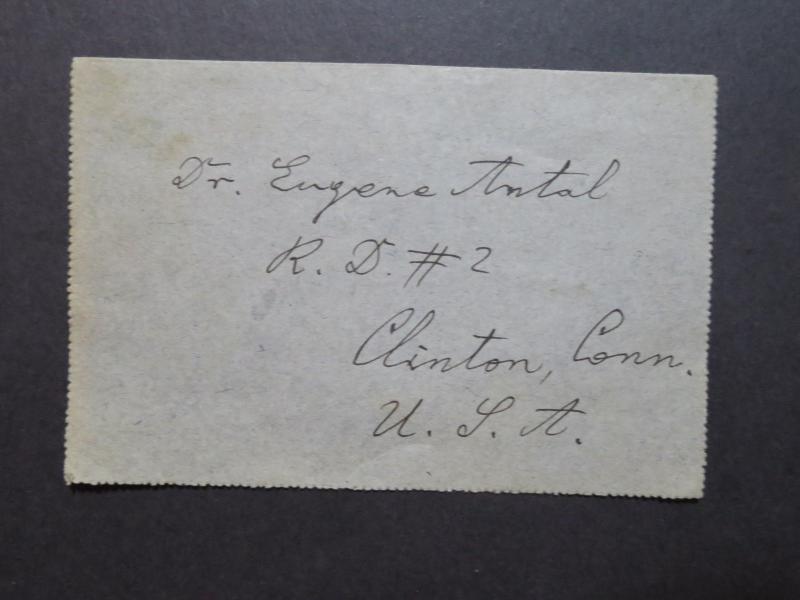 Dr. Eugene Antal
R. D. # 2
Clinton, Conn.
U. S. A.